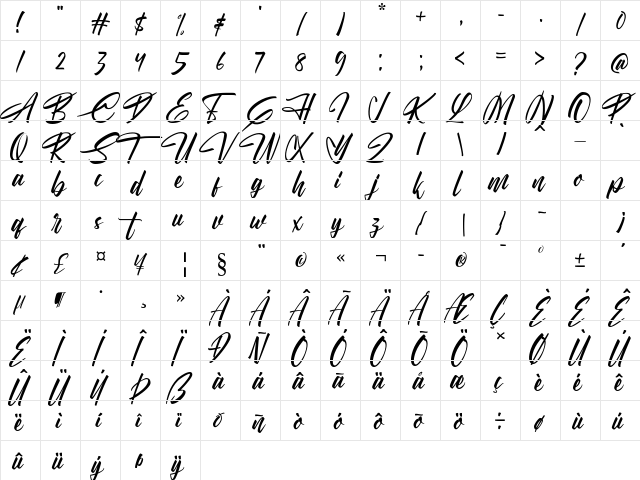 ! " # $ % & ' ( ) * + , - . / 0
1 2 3 4 5 6 7 8 9 : ; < = > ? @
A B C D E F G H I J K L M N O P
Q R S T U V W X Y Z [ \ ] ^ _ `
a b c d e f g h i j k l m n o p
q r s t u v w x y z { | } ~ ¡
¢ £ ¤ ¥ ¦ § ¨ © « ¬ - ® ¯ ° ± ´
µ ¶ · ¸ » À Á Â Ã Ä Å Æ Ç È É Ê
Ë Ì Í Î Ï Ð Ñ Ò Ó Ô Õ Ö × Ø Ù Ú
Û Ü Ý Þ ß à á â ã ä å æ ç è é ê
ë ì í î ï ð ñ ò ó ô õ ö ÷ ø ù ú
û ü ý þ ÿ